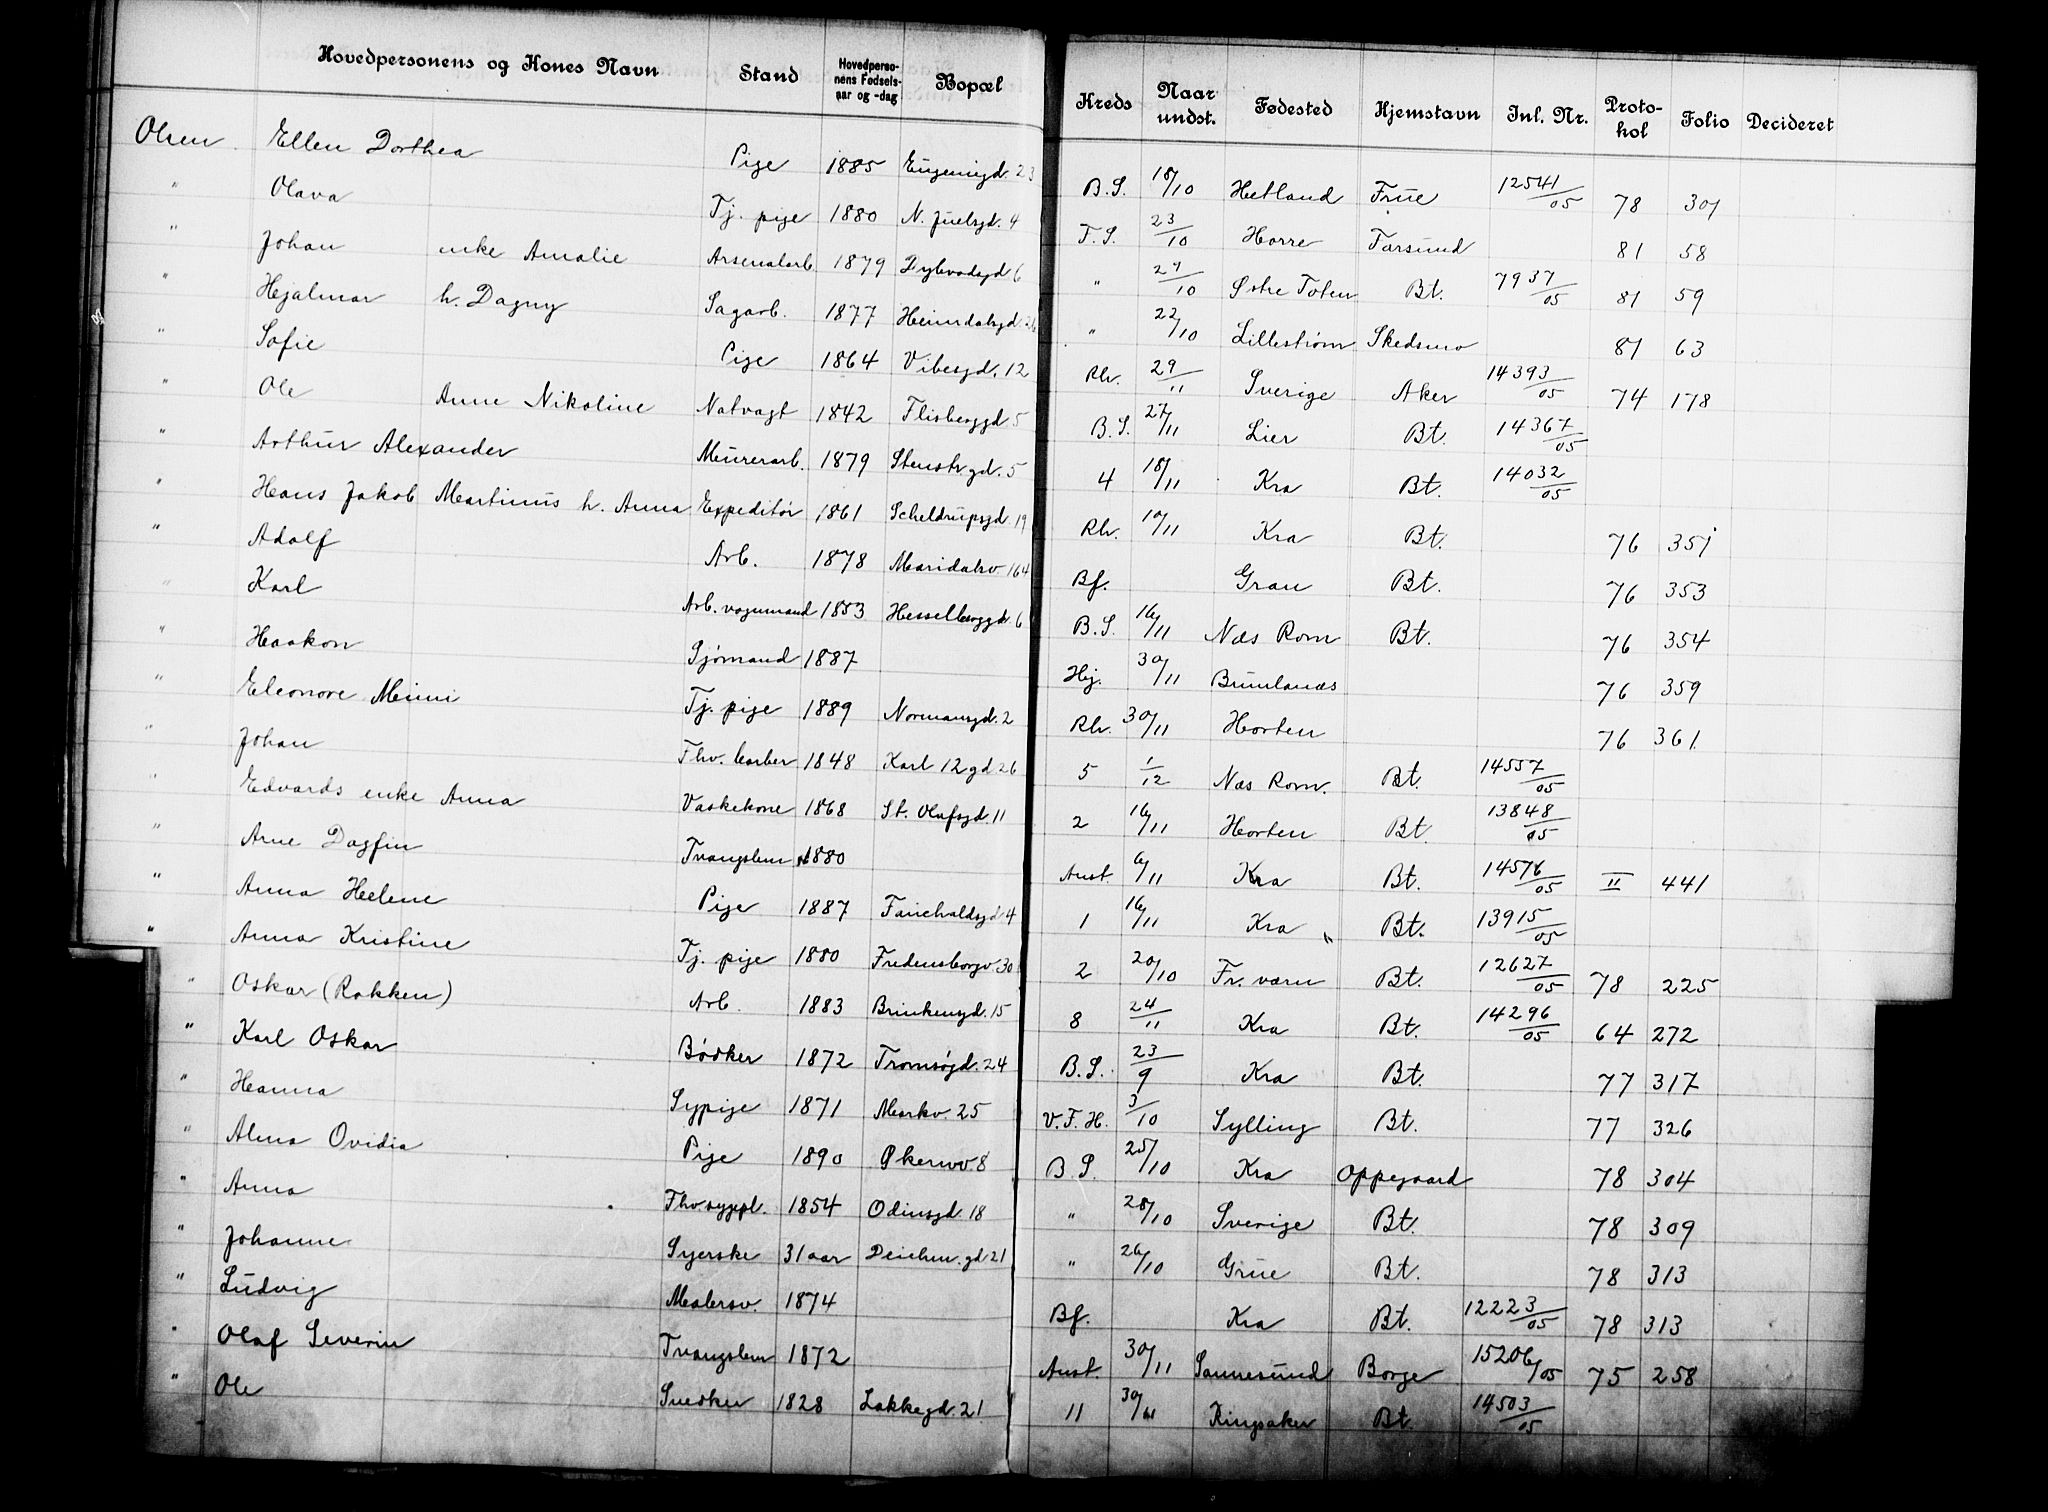 Hovedpersonens og Kones Navn Stand Hovedpersonens Fødselsaar og -dag Bopæl Kreds Naar undst. Fødested Hjemstavn Inl. Nr. Protokol Folio Decideret
Olsen Ellen Dorthea Pige 1885 Eugenigd. 23 B.S. 18/10 Hetland Frue 12541/05 78 301
" Olava Tj. pige 1880 N. Juelsgd. 4 F.S. 23/10 Farsund 81 58
" Johan enke Amalie Arsenalarb. 1879 Dybvadsgd 6 " 27/10 Østre Toten Bt. 7937/05 81 59
" Hjalmar h. Dagny Sagarb. 1877 Heimdalsgd. 26 " 22/10 Lillestrøm Skedsmo 81 63
" Sofie Pige 1864 Vibesgd. 12 Rh. 29/11 Sverige Aker 14393/05 74 178
" Ole Anne Nikoline Natvagt 1842 Flisberggd 5 B.S. 27/11 Lier Bt. 14367/05
" Arthur Alexander Murerarb. 1879 Stenstr.gd. 5 4 18/11 Kra Bt. 14032/05
" Hans Jakob Martinus h. Anna Expeditør 1861 Scheldrupsgd. 19 Rh. 10/11 Kra Bt. 76 351
" Adolf Arb. 1878 Maridalsv 164 Bf. Gran Bt. 76 353
" Karl Arb. vognmand 1853 Hesselberggd. 6 B.S. 16/11 Næs Rom Bt. 76 354
" Haakon Sjømand 1887 Hj. 30/11 Brunlanæs 76 359
" Eleonore Mimi Tj. pige 1889 Normansgd. 2 Rh. 30/11 Horten 76 361
" Johan Fhv. barber 1848 Karl 12 gd 26 5 1/12 Næs Rom. Bt. 14557/05
" Edvards enke Anna Vaskekone 1868 St. Olafsgd. 11 2 16/11 Horten Bt. 13848/05
" Arne Dagfin Tvangslem 1880 Anst. 6/11 Kra Bt. 14576/05 II 441
" Anna Helene Pige 1887 Fauchaldsgd 4 1 16/11 Kra " Bt. 13915/05
" Anna Kristine Tj. pige 1880 Fredensborgv. 30 2 20/10 Fr.værn Bt. 12627/05 78 225
" Oskar (Rokken) Arb. 1883 Brinkensgd. 15 8 24/11 Kra Bt. 14296/05 64 272
" Karl Oskar Bødker 1872 Tromsøgd. 24 B.S. 23/9 Kra Bt. 77 317
" Hanna Sypige 1871 Markv. 25 V.F.H. 3/10 Sylling Bt. 77 326
" Alma Ovidia Pige 1890 Økernvv 8 B.S. 25/10 Kra Oppegaard 78 304
" Anna Fhv. sygepl. 1854 Odinsgd. 18 " 28/10 Sverige Bt. 78 309
" Johanne Syerske 31 aar Deichm. gd 21 " 26/10 Grue Bt. 78 313
" Ludvig Malersv. 1874 Bf. Kra Bt. 12223/05 78 313
" Olaf Severin Tvangslem 1872 Anst. 30/11 Sannesund Borge 15206/05 75 258
" Ole Snedker 1828 Lakkegd. 21 11 30/11 Ringsaker Bt. 14503/05